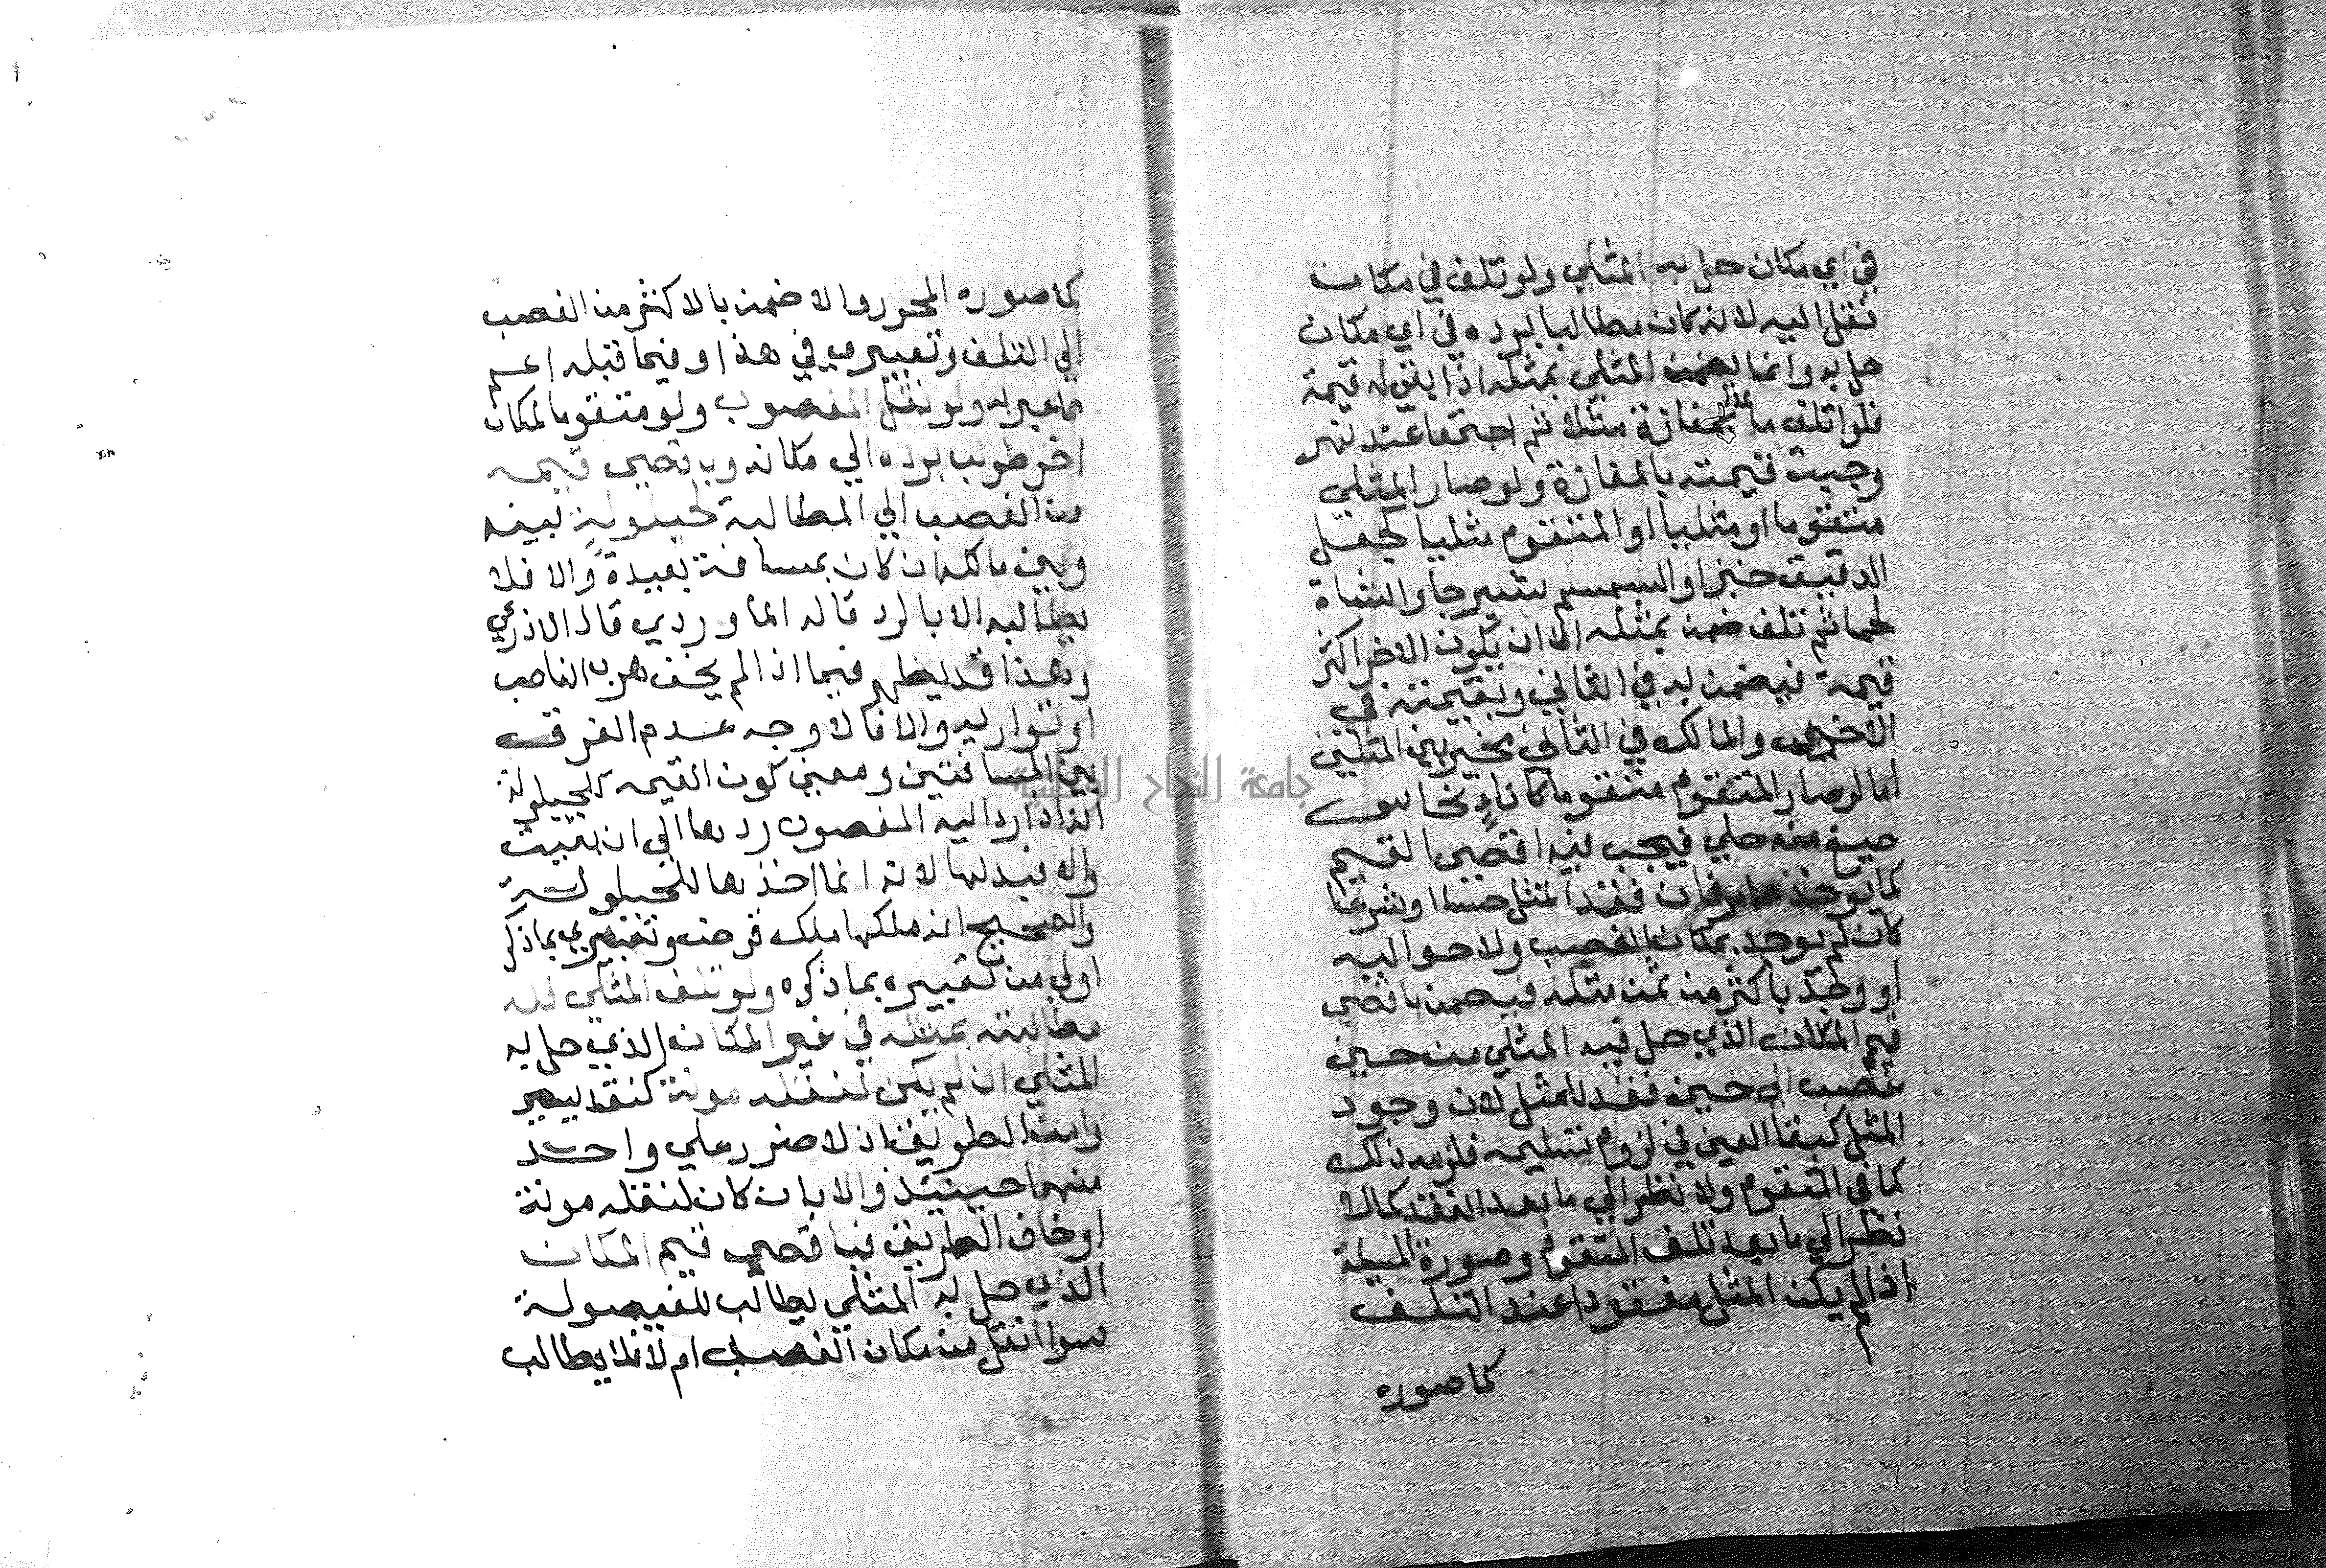 في اي مكان حل به المثلي ولو تلف في مكان
نقل اليه لانه كان مطالبا برده في اي مكان
حل به وانما يضمن المثلي بمثله اذا بقي له قيمة
فلو اتلف ما بمفازة مثلا ثم اجتمعا عند نهر
وجبت قيمته بالمفازة ولو صار المثلي
متقوما او مثليا او المتقوم مثليا كجعل
الدقيق خبزا والسمسم شيرجا والشاة
لحما ثم تلف ضمن بمثله الا ان يكون الاخر اكثر
قيمة فيضمن به في الثاني وبقيمته في
الاخرين والمالك في الثاني مخير بين المثلين
اما لو صار المتقوم متقوما كاناء نحاس
صيغ منه حلي فيجب فيه اقصى القيم
كما يوخذ مما مر فان فقد المثل حسا او شرعا
كان لم يوجد بمكان الغصب ولا حواليه
او وجد باكثر من ثمن مثله فيضمن باقصى
قيم المكان الذي حل فيه المثلي من حين
غصب الى حين فقد للمثل لان وجود
المثل كبقا العين في لزوم تسليمه فلزمه ذلك
كما في المتقوم ولا نظر الي ما بعد الفقد كما لا
نظر الي ما بعد تلف المتقوم وصورة المسيلة
اذا لم يكن المثل مفقودا عند التلف
كما صوره
كما صوره المحرر والا ضمن بالاكثر من الغصب
الي التلف وتعبيري في هذا وفيما قبله اعم
مما عبر به ولو نقل المغصوب ولو متقوما لمكان
اخر طولب برده الي مكانه وباقصى قيمه
من الغصب الي المطالبة لحيلولة بينه
وبين مالكه ان كان بمسافة بعيدة والا فلا
يطالبه الا بالرد قاله الماوردي قال الاذرعي
وهذا قد يظهر فيما اذا لم يخف هرب الغاصب
او تواريه والا فالاوجه عدم الفرق
بين المسافتين ومعنى كون القيمه للحيلولة
انه اذا رد اليه المغصوب ردها الي ان بقيت
والا فبدلها لانه انما اخذها للحيلولة
والصحيح انه ملكها ملك قرض وتعبيري بما ذكر
اولى من تعبيره بما ذكره ولو تلف المثلي فله
مطالبته بمثله في غير المكان الذي حل به
المثلي ان لم يكن لنقله مونة كنقد يسير
وامن الطريق اذ لا ضرر علي واحد
منهما حينيذ والا بان كان لنقله مونة
او خاف الطريق فباقصى قيم المكان
الذي حل به المثلي يطالب للفيصولة
سوا انقل من مكان الغصب ام لا فلا يطالب
جامعة النجاح الوطنية